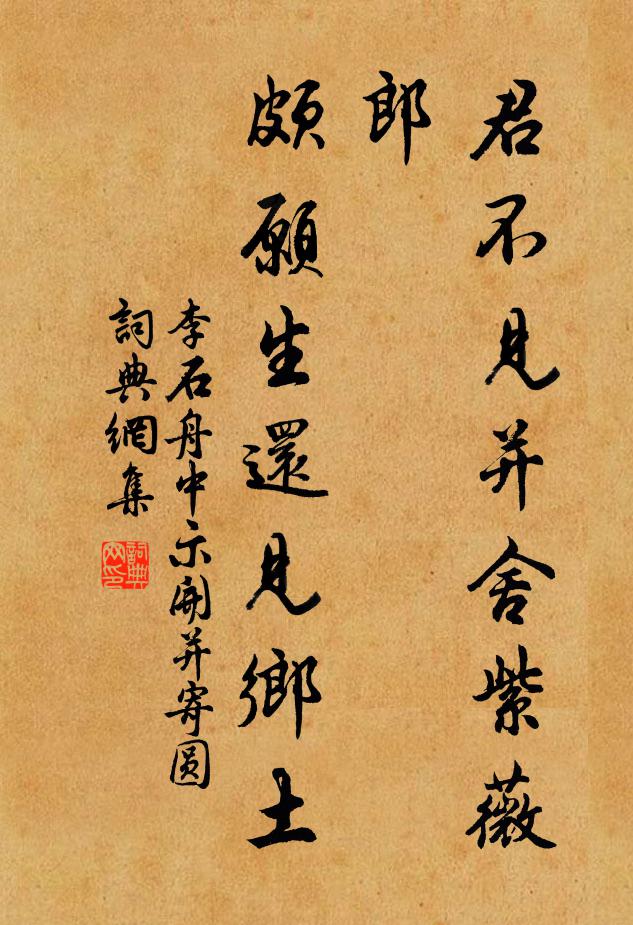 君不見并舍紫薇
郎
頗願生還見鄉土
李石舟中示開并寄圓
詞典網集
詞典
网印